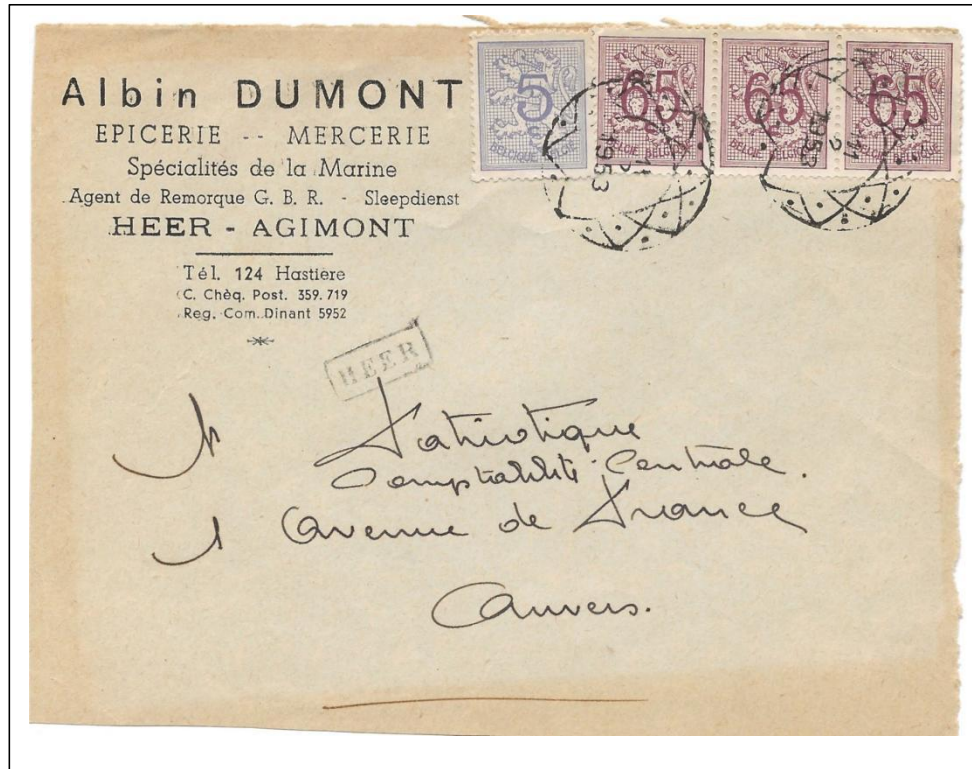 Albin DUMONT
EPICERIE -- MERCERIE
Spécialités de la Marine
Agent de Remorque G. B. R. - Sleepdienst
HEER - AGIMONT
Tél. 124 Hastière
C. Chèq. Post. 359.719
Reg. Com. Dinant 5952
5 65 65 65
BELGIQUE BELGIE
11
2
1953
11
2
1953
HEER
Patriotique
Comptabilité Centrale.
1 Avenue de France
Anvers.